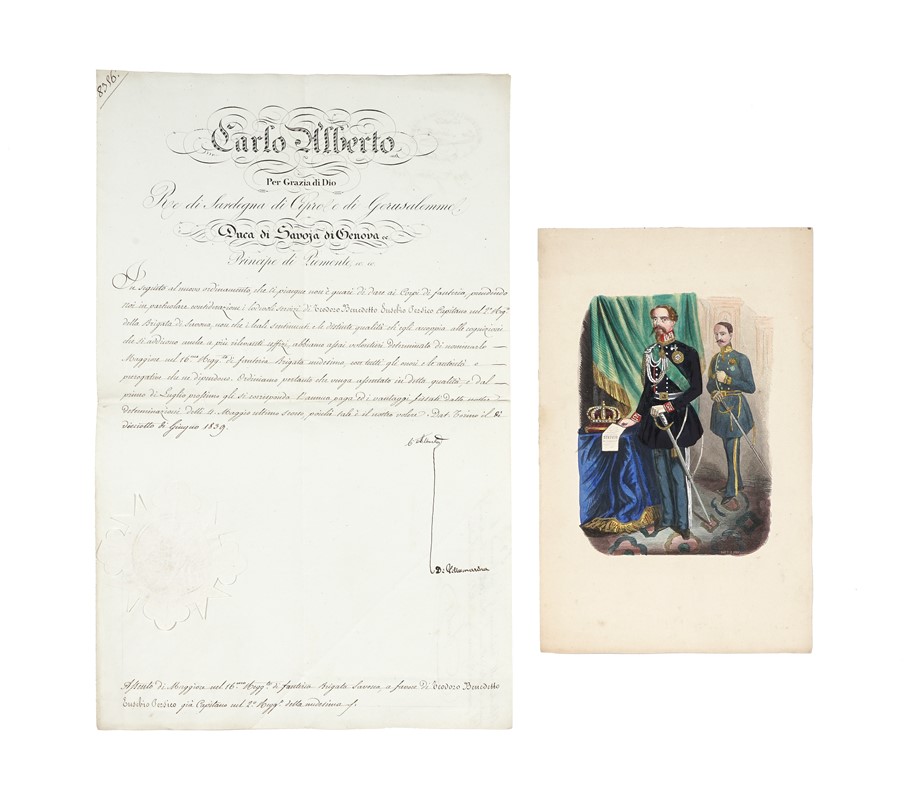 8396.
Carlo Alberto
Per Grazia di Dio
Re di Sardegna di Cipro e di Gerusalemme
Duca di Savoja di Genova ec
Principe di Piemonte ec ec
In seguito al nuovo ordinamento, che ci piacque non è guari di dare ai Corpi di fanteria, prendendo
noi in particolare considerazione i lodevoli servizi di Teodoro Benedetto Eusebio Persico Capitano nel 2.° Regg.°
della Brigata di Savona, non che i leali sentimenti e le distinte qualità ch'egli accoppia alle cognizioni
che si addicono anche a più rilevanti uffizj, abbiamo assai volentieri determinato di nominarlo
Maggiore nel 16.mo Regg.to di fanteria Brigata medesima, con tutti gli onori e le autorità e
prerogative che ne dipendono. Ordiniamo pertanto che venga assentato in detta qualità e dal
primo di Luglio prossimo gli si corrisponda l'annua paga ed i vantaggi fissati dalla nostra
determinazione delli 4 Maggio ultimo scorso, poichè tale è il nostro volere. Dat. Torino il dì
dieciotto di Giugno 1839.
C Alberto
Di Villamarina
Assento di Maggiore nel 16.mo Regg.to di fanteria Brigata Savona a favore di Teodoro Benedetto
Eusebio Persico già Capitano nel 2.° Regg.to della medesima